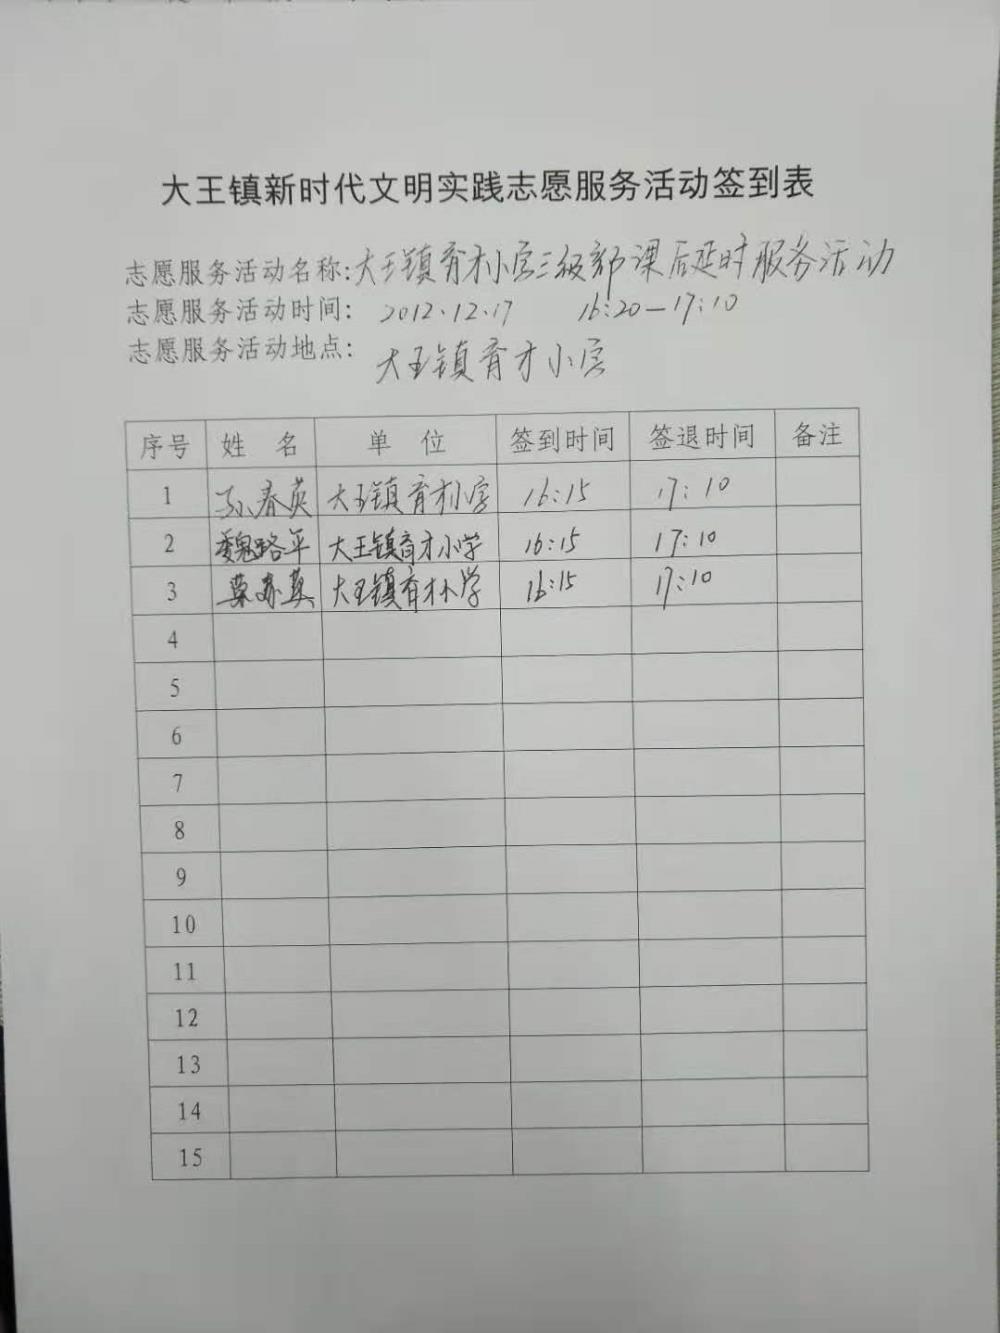 大王镇新时代文明实践志愿服务活动签到表
志愿服务活动名称:大王镇育才小学三级部课后延时服务活动
志愿服务活动时间: 2012.12.17 16:20—17:10
志愿服务活动地点: 大王镇育才小学
序号 姓 名 单 位 签到时间 签退时间 备注
1 孙春英 大王镇育才小学 16:15 17:10
2 魏路平 大王镇育才小学 16:15 17:10
3 英 大王镇育才小学 16:15 17:10
4
5
6
7
8
9
10
11
12
13
14
15